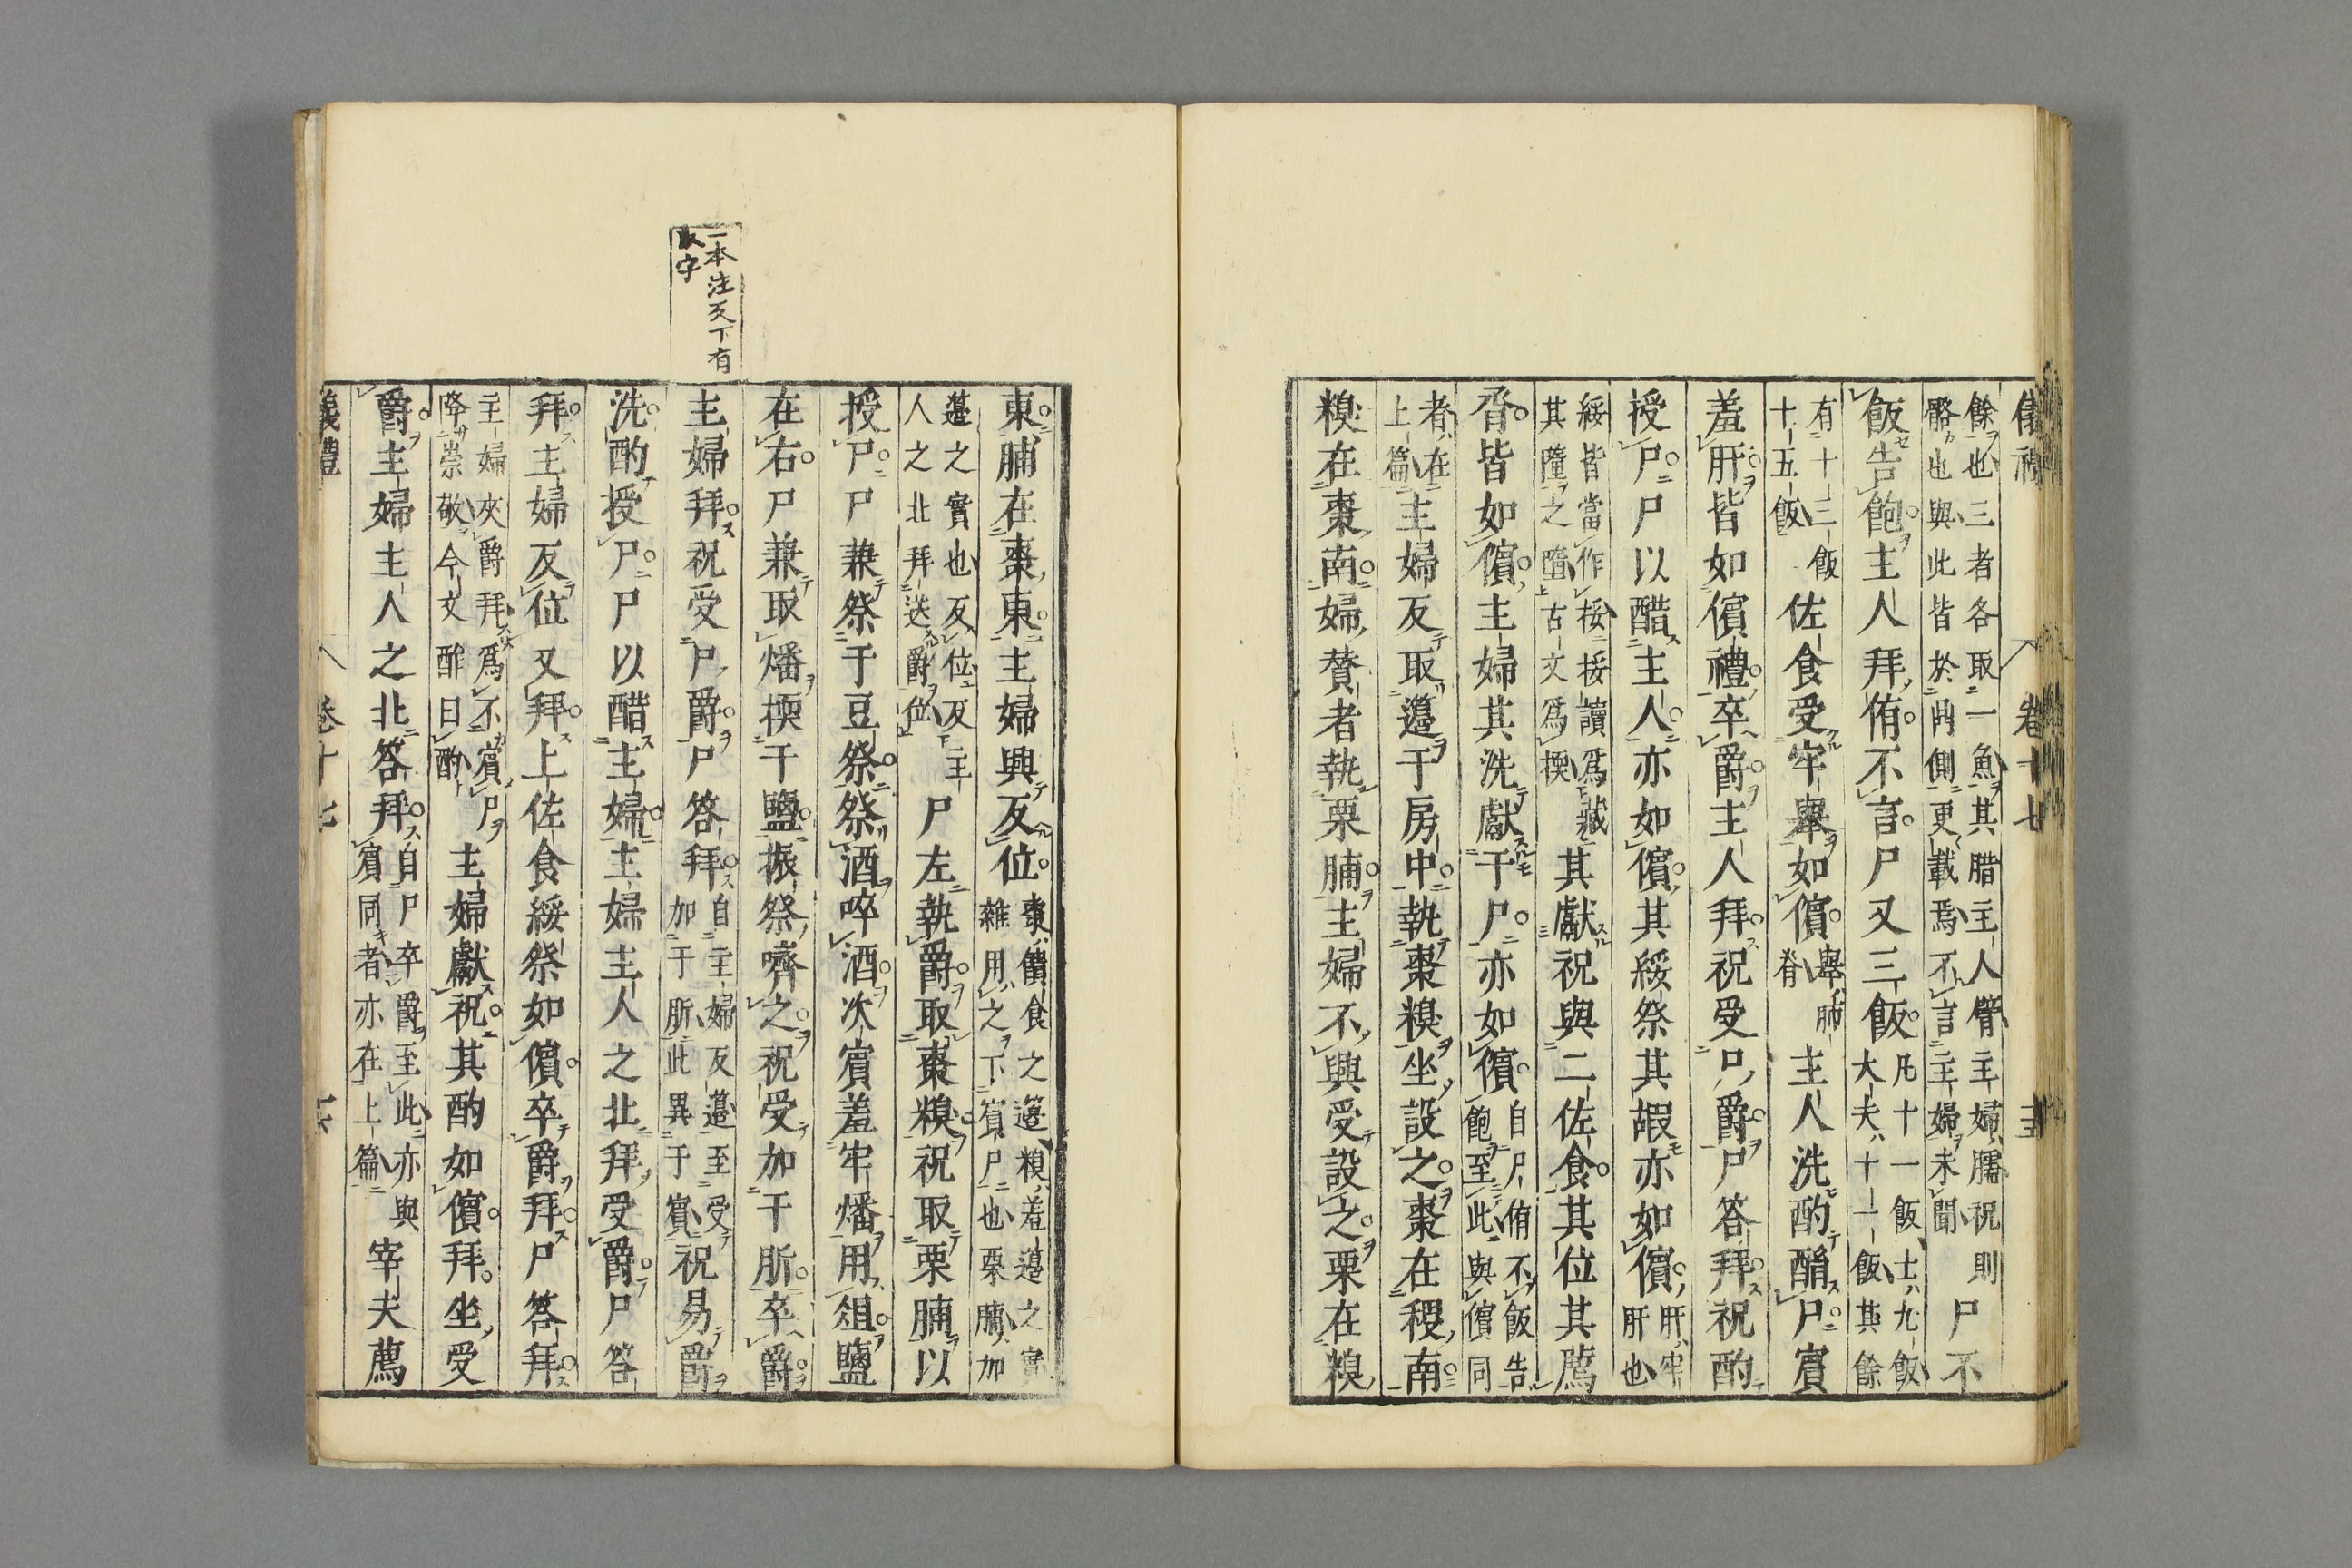 儀禮 卷十七 十五
餘也三者各取一魚其腊主人臂主婦臑祝則
骼也與此皆於鼎側更載焉不言主婦未聞
尸不
飯告飽主人拜侑不言尸又三飯
凡十一飯士九飯
大夫十一飯其餘
有十三飯
十五飯
佐食受牢舉如儐
舉肺
脊
主人洗酌酳尸賓
羞肝皆如儐禮卒爵主人拜祝受尸爵尸答拜祝酌
授尸尸以醋主人亦如儐其綏祭其嘏亦如儐
肝牢
肝也
綏皆當作挼挼讀爲藏
其隳之隳古文爲擩
其獻祝與二佐食其位其薦
脀皆如儐主婦其洗獻于尸亦如儐
自尸侑不飯告
飽至此與儐同
者在
上篇
主婦反取籩于房中執棗糗坐設之棗在稷南
糗在棗南婦贊者執栗脯主婦不興受設之栗在糗
東脯在棗東主婦興反位
棗饋食之籩糗羞籩之實
雜用之下賓尸也栗脯加
籩之實也反位反主
人之北拜送爵位
尸左執爵取棗糗祝取栗脯以
授尸尸兼祭于豆祭祭酒啐酒次賓羞牢燔用俎鹽
在右尸兼取燔擩于鹽振祭嚌之祝受加于肵卒爵
一本注反下有
取字
主婦拜祝受尸爵尸答拜
自主婦反籩至受
加于肵此異于賓
祝易爵
洗酌授尸尸以醋主婦主婦主人之北拜受爵尸答
拜主婦反位又拜上佐食綏祭如儐卒爵拜尸答拜
主婦夾爵拜爲不賓尸
降崇敬今文酢曰酌
主婦獻祝其酌如儐拜坐受
爵主婦主人之北答拜
自尸卒爵至此亦與
賓同者亦在上篇
宰夫薦
儀禮 卷十七